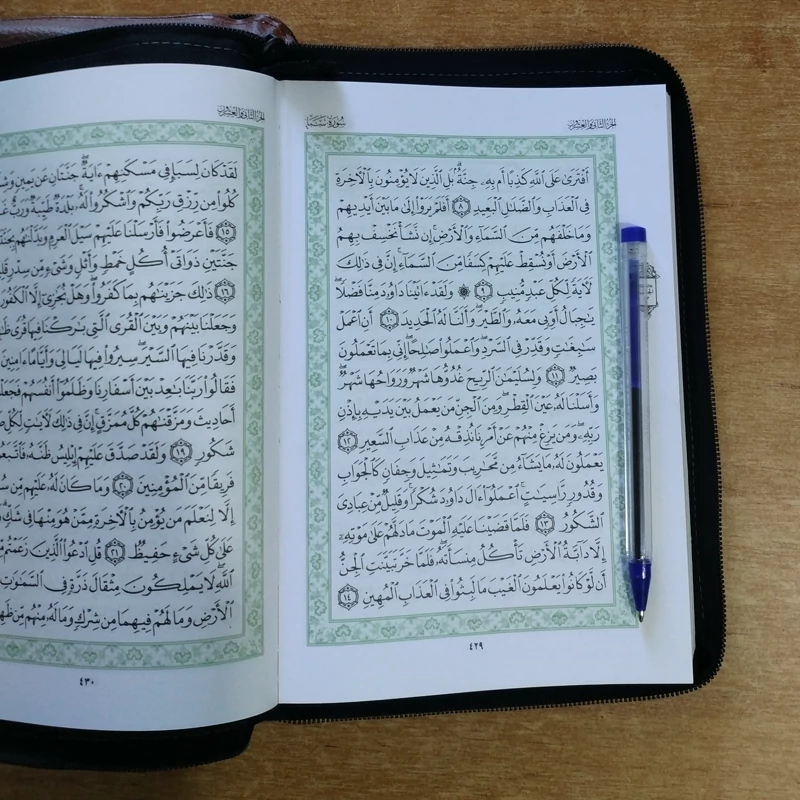 الجزء الثاني والعشرون
سورة سبأ
أَفْتَرَىٰ عَلَى ٱللَّهِ كَذِبًا أَم بِهِۦ جِنَّةٌۢ ۗ بَلِ ٱلَّذِينَ لَا يُؤْمِنُونَ بِٱلْأَخِرَةِ
فِى ٱلْعَذَابِ وَٱلضَّلَـٰلِ ٱلْبَعِيدِ ٨ أَفَلَمْ يَرَوْا۟ إِلَىٰ مَا بَيْنَ أَيْدِيهِمْ
وَمَا خَلْفَهُم مِّنَ ٱلسَّمَآءِ وَٱلْأَرْضِ ۚ إِن نَّشَأْ نَخْسِفْ بِهِمُ
ٱلْأَرْضَ أَوْ نُسْقِطْ عَلَيْهِمْ كِسَفًا مِّنَ ٱلسَّمَآءِ ۚ إِنَّ فِى ذَٰلِكَ
لَـَٔايَةً لِّكُلِّ عَبْدٍ مُّنِيبٍ ٩ ۞ وَلَقَدْ ءَاتَيْنَا دَاوُۥدَ مِنَّا فَضْلًا ۖ
يَـٰجِبَالُ أَوِّبِى مَعَهُۥ وَٱلطَّيْرَ ۖ وَأَلَنَّا لَهُ ٱلْحَدِيدَ ١٠ أَنِ ٱعْمَلْ
سَـٰبِغَـٰتٍ وَقَدِّرْ فِى ٱلسَّرْدِ ۖ وَٱعْمَلُوا۟ صَـٰلِحًا ۖ إِنِّى بِمَا تَعْمَلُونَ
بَصِيرٌ ١١ وَلِسُلَيْمَـٰنَ ٱلرِّيحَ غُدُوُّهَا شَهْرٌ وَرَوَاحُهَا شَهْرٌ ۖ
وَأَسَلْنَا لَهُۥ عَيْنَ ٱلْقِطْرِ ۖ وَمِنَ ٱلْجِنِّ مَن يَعْمَلُ بَيْنَ يَدَيْهِ بِإِذْنِ
رَبِّهِۦ ۖ وَمَن يَزِغْ مِنْهُمْ عَنْ أَمْرِنَا نُذِقْهُ مِنْ عَذَابِ ٱلسَّعِيرِ ١٢
يَعْمَلُونَ لَهُۥ مَا يَشَآءُ مِن مَّحَـٰرِيبَ وَتَمَـٰثِيلَ وَجِفَانٍ كَٱلْجَوَابِ
وَقُدُورٍ رَّاسِيَـٰتٍ ۚ ٱعْمَلُوٓا۟ ءَالَ دَاوُۥدَ شُكْرًا ۚ وَقَلِيلٌ مِّنْ عِبَادِىَ
ٱلشَّكُورُ ١٣ فَلَمَّا قَضَيْنَا عَلَيْهِ ٱلْمَوْتَ مَا دَلَّهُمْ عَلَىٰ مَوْتِهِۦٓ
إِلَّا دَآبَّةُ ٱلْأَرْضِ تَأْكُلُ مِنسَأَتَهُۥ ۖ فَلَمَّا خَرَّ تَبَيَّنَتِ ٱلْجِنُّ
أَن لَّوْ كَانُوا۟ يَعْلَمُونَ ٱلْغَيْبَ مَا لَبِثُوا۟ فِى ٱلْعَذَابِ ٱلْمُهِينِ ١٤
٤٢٩
الجزء الثاني والعشرون
لَقَدْ كَانَ لِسَبَإٍ فِى مَسْكَنِهِمْ ءَايَةٌ ۖ جَنَّتَانِ عَن يَمِينٍ
كُلُوا۟ مِن رِّزْقِ رَبِّكُمْ وَٱشْكُرُوا۟ لَهُۥ ۚ بَلْدَةٌ طَيِّبَةٌ وَرَبٌّ
١٥ فَأَعْرَضُوا۟ فَأَرْسَلْنَا عَلَيْهِمْ سَيْلَ ٱلْعَرِمِ وَبَدَّلْنَـٰهُم
جَنَّتَيْنِ ذَوَاتَىْ أُكُلٍ خَمْطٍ وَأَثْلٍ وَشَىْءٍ مِّن سِدْرٍ
١٦ ذَٰلِكَ جَزَيْنَـٰهُم بِمَا كَفَرُوا۟ ۖ وَهَلْ نُجَـٰزِىٓ إِلَّا ٱلْكَفُورَ
وَجَعَلْنَا بَيْنَهُمْ وَبَيْنَ ٱلْقُرَى ٱلَّتِى بَـٰرَكْنَا فِيهَا قُرًى
وَقَدَّرْنَا فِيهَا ٱلسَّيْرَ ۖ سِيرُوا۟ فِيهَا لَيَالِىَ وَأَيَّامًا ءَامِنِينَ
فَقَالُوا۟ رَبَّنَا بَـٰعِدْ بَيْنَ أَسْفَارِنَا وَظَلَمُوٓا۟ أَنفُسَهُمْ
أَحَادِيثَ وَمَزَّقْنَـٰهُمْ كُلَّ مُمَزَّقٍ ۚ إِنَّ فِى ذَٰلِكَ لَـَٔايَـٰتٍ لِّكُلِّ
شَكُورٍ ١٩ وَلَقَدْ صَدَّقَ عَلَيْهِمْ إِبْلِيسُ ظَنَّهُۥ
فَرِيقًا مِّنَ ٱلْمُؤْمِنِينَ ٢٠ وَمَا كَانَ لَهُۥ عَلَيْهِم مِّن
إِلَّا لِنَعْلَمَ مَن يُؤْمِنُ بِٱلْـَٔاخِرَةِ مِمَّنْ هُوَ مِنْهَا فِى
عَلَىٰ كُلِّ شَىْءٍ حَفِيظٌ ٢١ قُلِ ٱدْعُوا۟ ٱلَّذِينَ زَعَمْتُم
ٱللَّهِ ۖ لَا يَمْلِكُونَ مِثْقَالَ ذَرَّةٍ فِى ٱلسَّمَـٰوَٰتِ
ٱلْأَرْضِ وَمَا لَهُمْ فِيهِمَا مِن شِرْكٍ وَمَا لَهُۥ مِنْهُم مِّن
٤٣٠